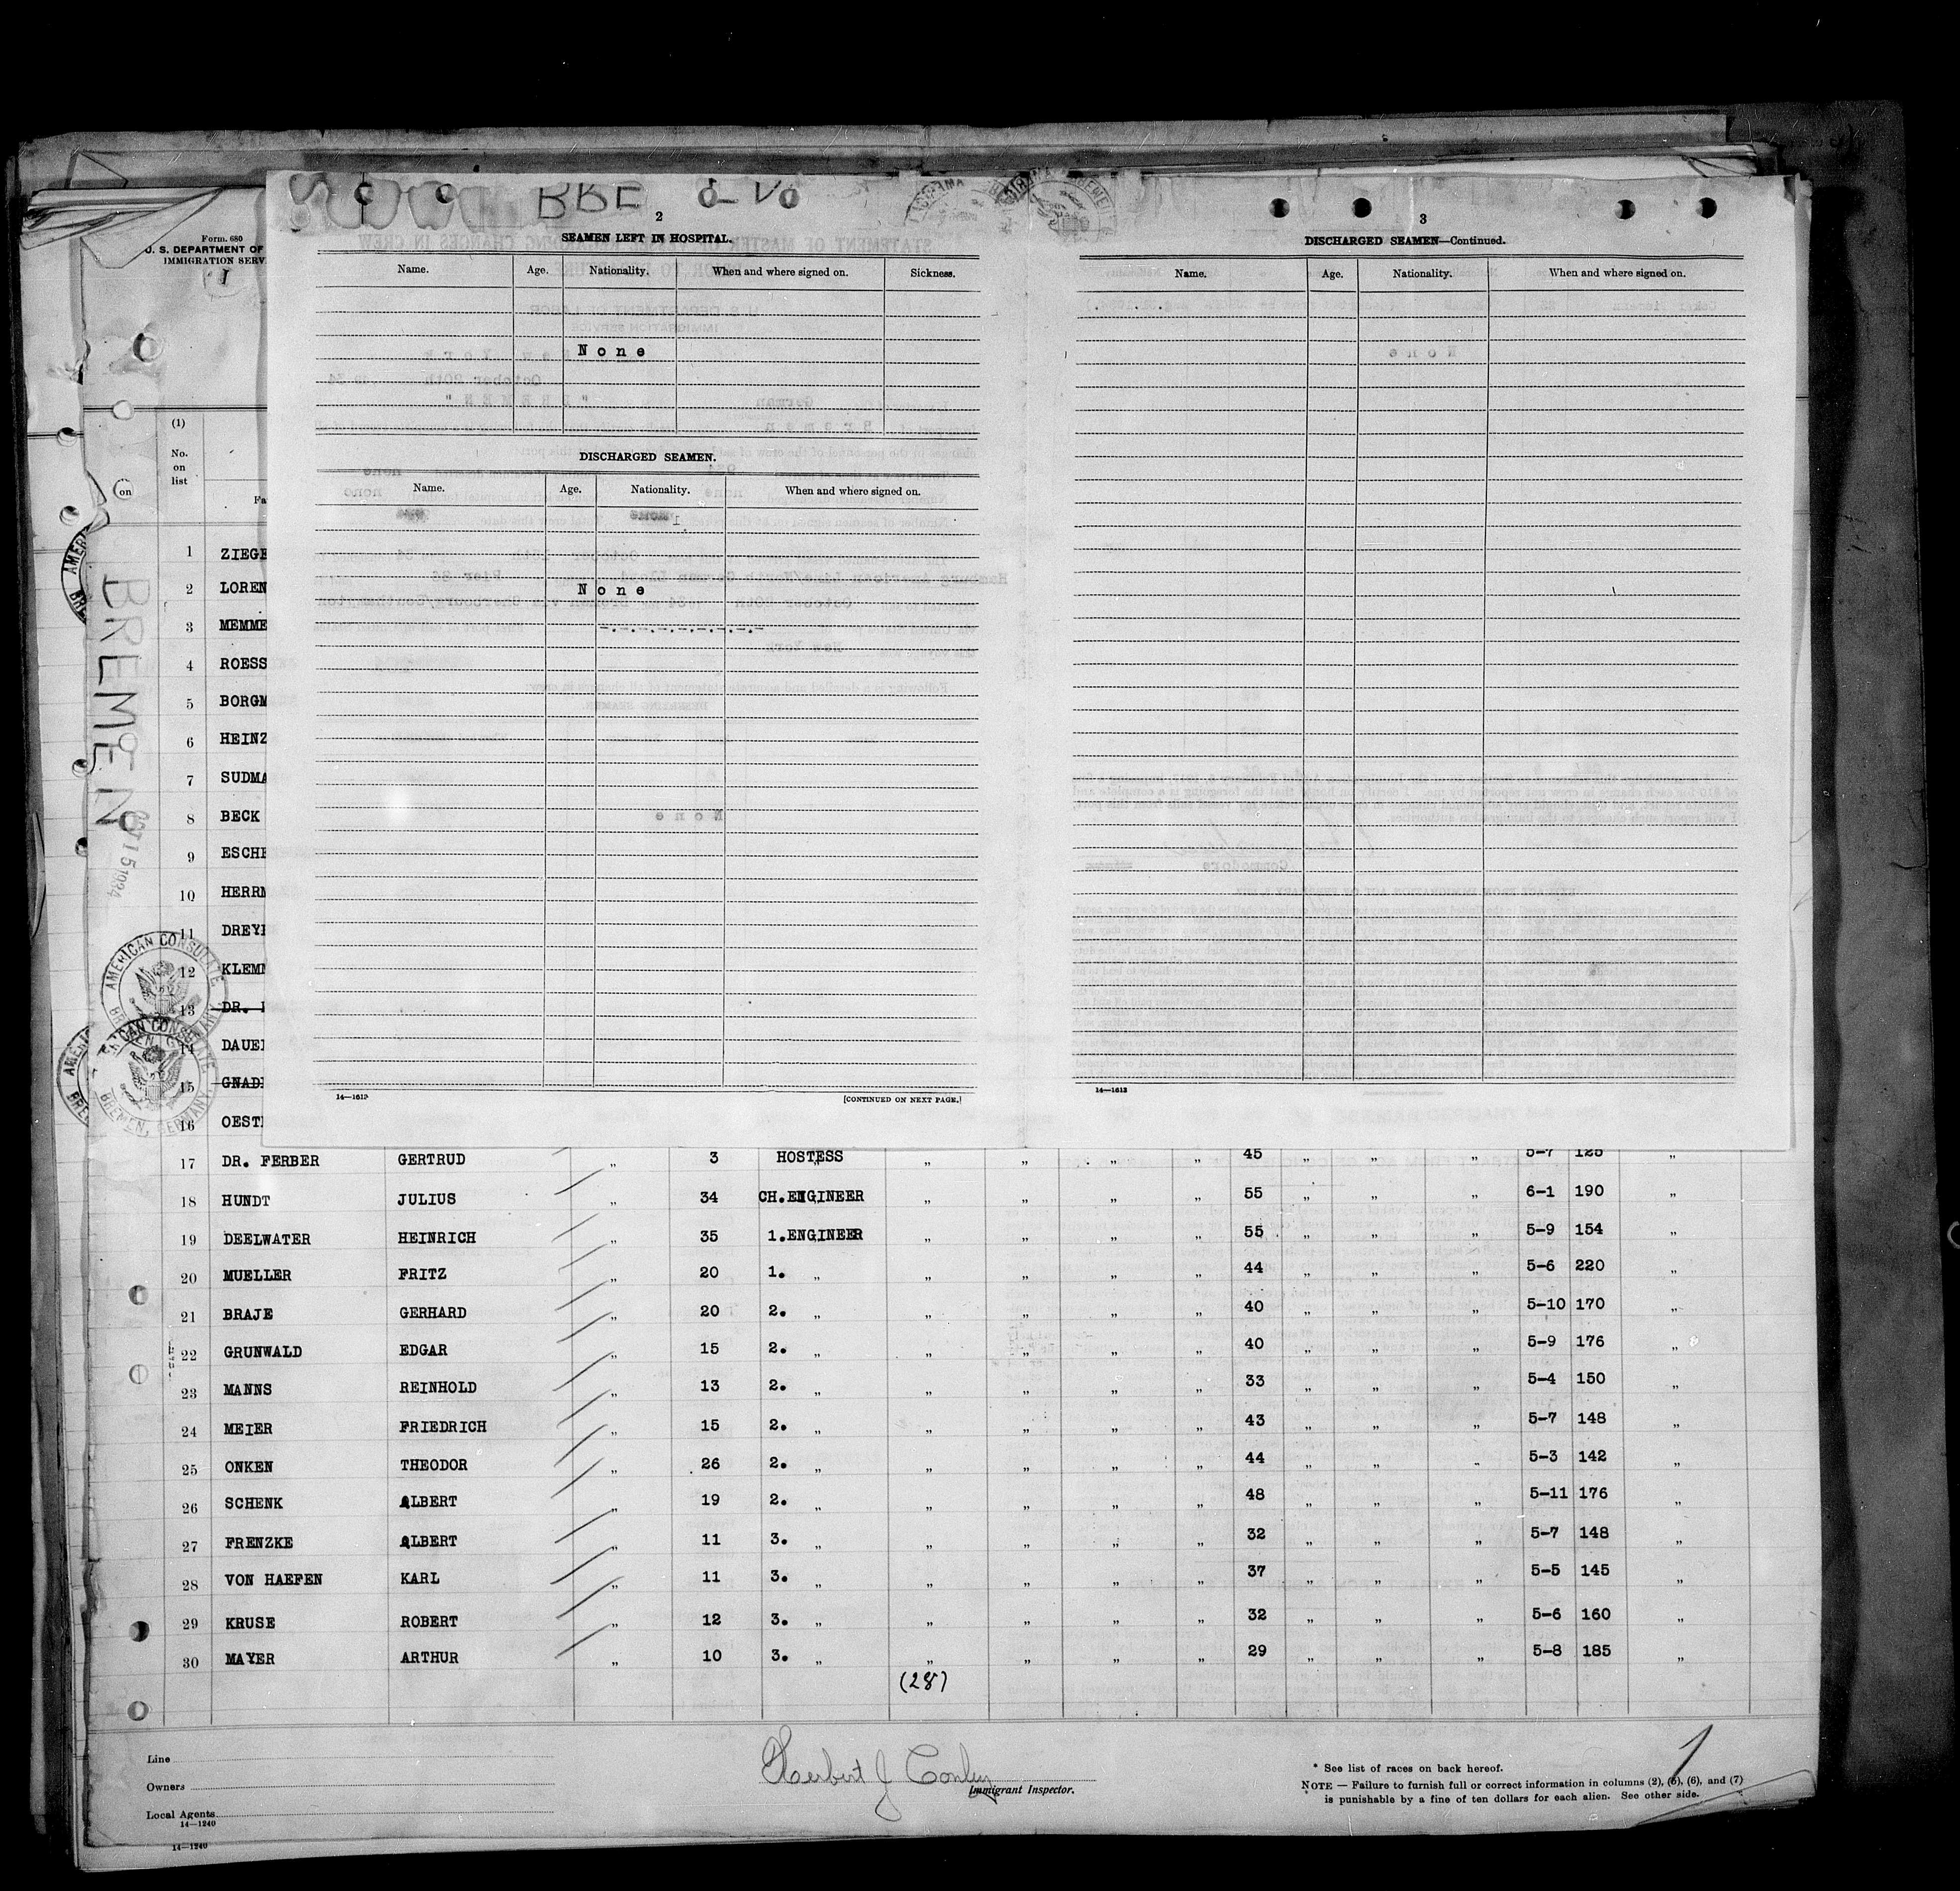 2
SEAMEN LEFT IN HOSPITAL.
Name. Age. Nationality. When and where signed on. Sickness.
None
DISCHARGED SEAMEN.
Name. Age. Nationality. When and where signed on.
None
-.-.-.-.-.-.-.-.-.-
14—1613
[CONTINUED ON NEXT PAGE.]
3
DISCHARGED SEAMEN—Continued.
Name. Age. Nationality. When and where signed on.
14—1613
Form. 680
U. S. DEPARTMENT OF
IMMIGRATION SERV
I
(1)
No.
on
list
on
Fa
BREMEN
OCT 15 1934
AMERICAN CONSULATE
BREMEN, GERMANY
1 ZIEGE
2 LOREN
3 MEMME
4 ROESS
5 BORGM
6 HEINZ
7 SUDMA
8 BECK
9 ESCHE
10 HERRM
11 DREYE
12 KLEMM
13 DR.
14 DAUE
15 GNADE
16 OEST
17 DR. FERBER GERTRUD „ 3 HOSTESS „ „ „ „ 45 „ „ „ 5-7 125 „
18 HUNDT JULIUS „ 34 CH.ENGINEER „ „ „ „ 55 „ „ „ 6-1 190 „
19 DEELWATER HEINRICH „ 35 1.ENGINEER „ „ „ „ 55 „ „ „ 5-9 154 „
20 MUELLER FRITZ „ 20 1. „ „ „ „ „ 44 „ „ „ 5-6 220 „
21 BRAJE GERHARD „ 20 2. „ „ „ „ „ 40 „ „ „ 5-10 170 „
22 GRUNWALD EDGAR „ 15 2. „ „ „ „ „ 40 „ „ „ 5-9 176 „
23 MANNS REINHOLD „ 13 2. „ „ „ „ „ 33 „ „ „ 5-4 150 „
24 MEIER FRIEDRICH „ 15 2. „ „ „ „ „ 43 „ „ „ 5-7 148 „
25 ONKEN THEODOR „ 26 2. „ „ „ „ „ 44 „ „ „ 5-3 142 „
26 SCHENK ALBERT „ 19 2. „ „ „ „ „ 48 „ „ „ 5-11 176 „
27 FRENZKE ALBERT „ 11 3. „ „ „ „ „ 32 „ „ „ 5-7 148 „
28 VON HAEFEN KARL „ 11 3. „ „ „ „ „ 37 „ „ „ 5-5 145 „
29 KRUSE ROBERT „ 12 3. „ „ „ „ „ 32 „ „ „ 5-6 160 „
30 MAYER ARTHUR „ 10 3. „ „ „ „ „ 29 „ „ „ 5-8 185 „
(28)
Line
Owners
Local Agents
14—1240
14—1240
Herbert J Conley
Immigrant Inspector.
1
* See list of races on back hereof.
NOTE — Failure to furnish full or correct information in columns (2), (5), (6), and (7)
is punishable by a fine of ten dollars for each alien. See other side.